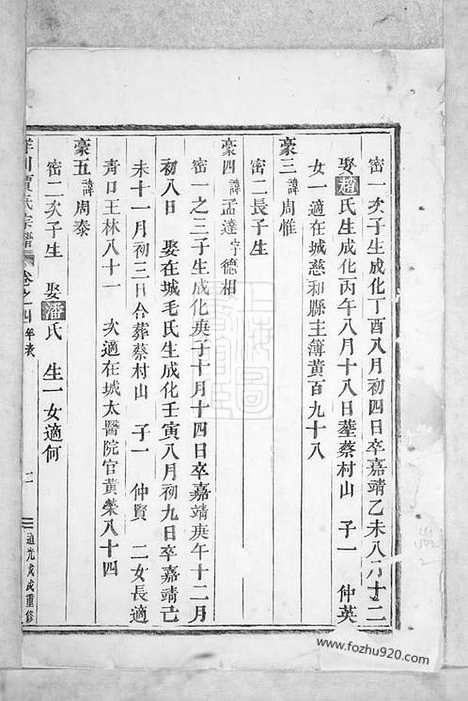 密一次子生成化丁酉八月初四日卒嘉靖乙未八月十二
娶趙氏生成化丙午八月十八日塟蔡村山 子一 仲英
女一適在城慈和縣主簿黃百九十八
豪三諱尚惟
密二長子生
豪四諱孟達字德相
密一之三子生成化庚子十月十四日卒嘉靖庚午十二月
初八日 娶在城毛氏生成化壬寅八月初九日卒嘉靖己
未十一月初三日合葬蔡村山 子一 仲賢 二女長適
青口王林八十一 次適在城太醫院官黃榮八十四
豪五諱周泰
密二次子生 娶潘氏 生一女適何
賈氏宗譜 卷之四 年表 二 道光戊戌重修
www.fozhu920.com